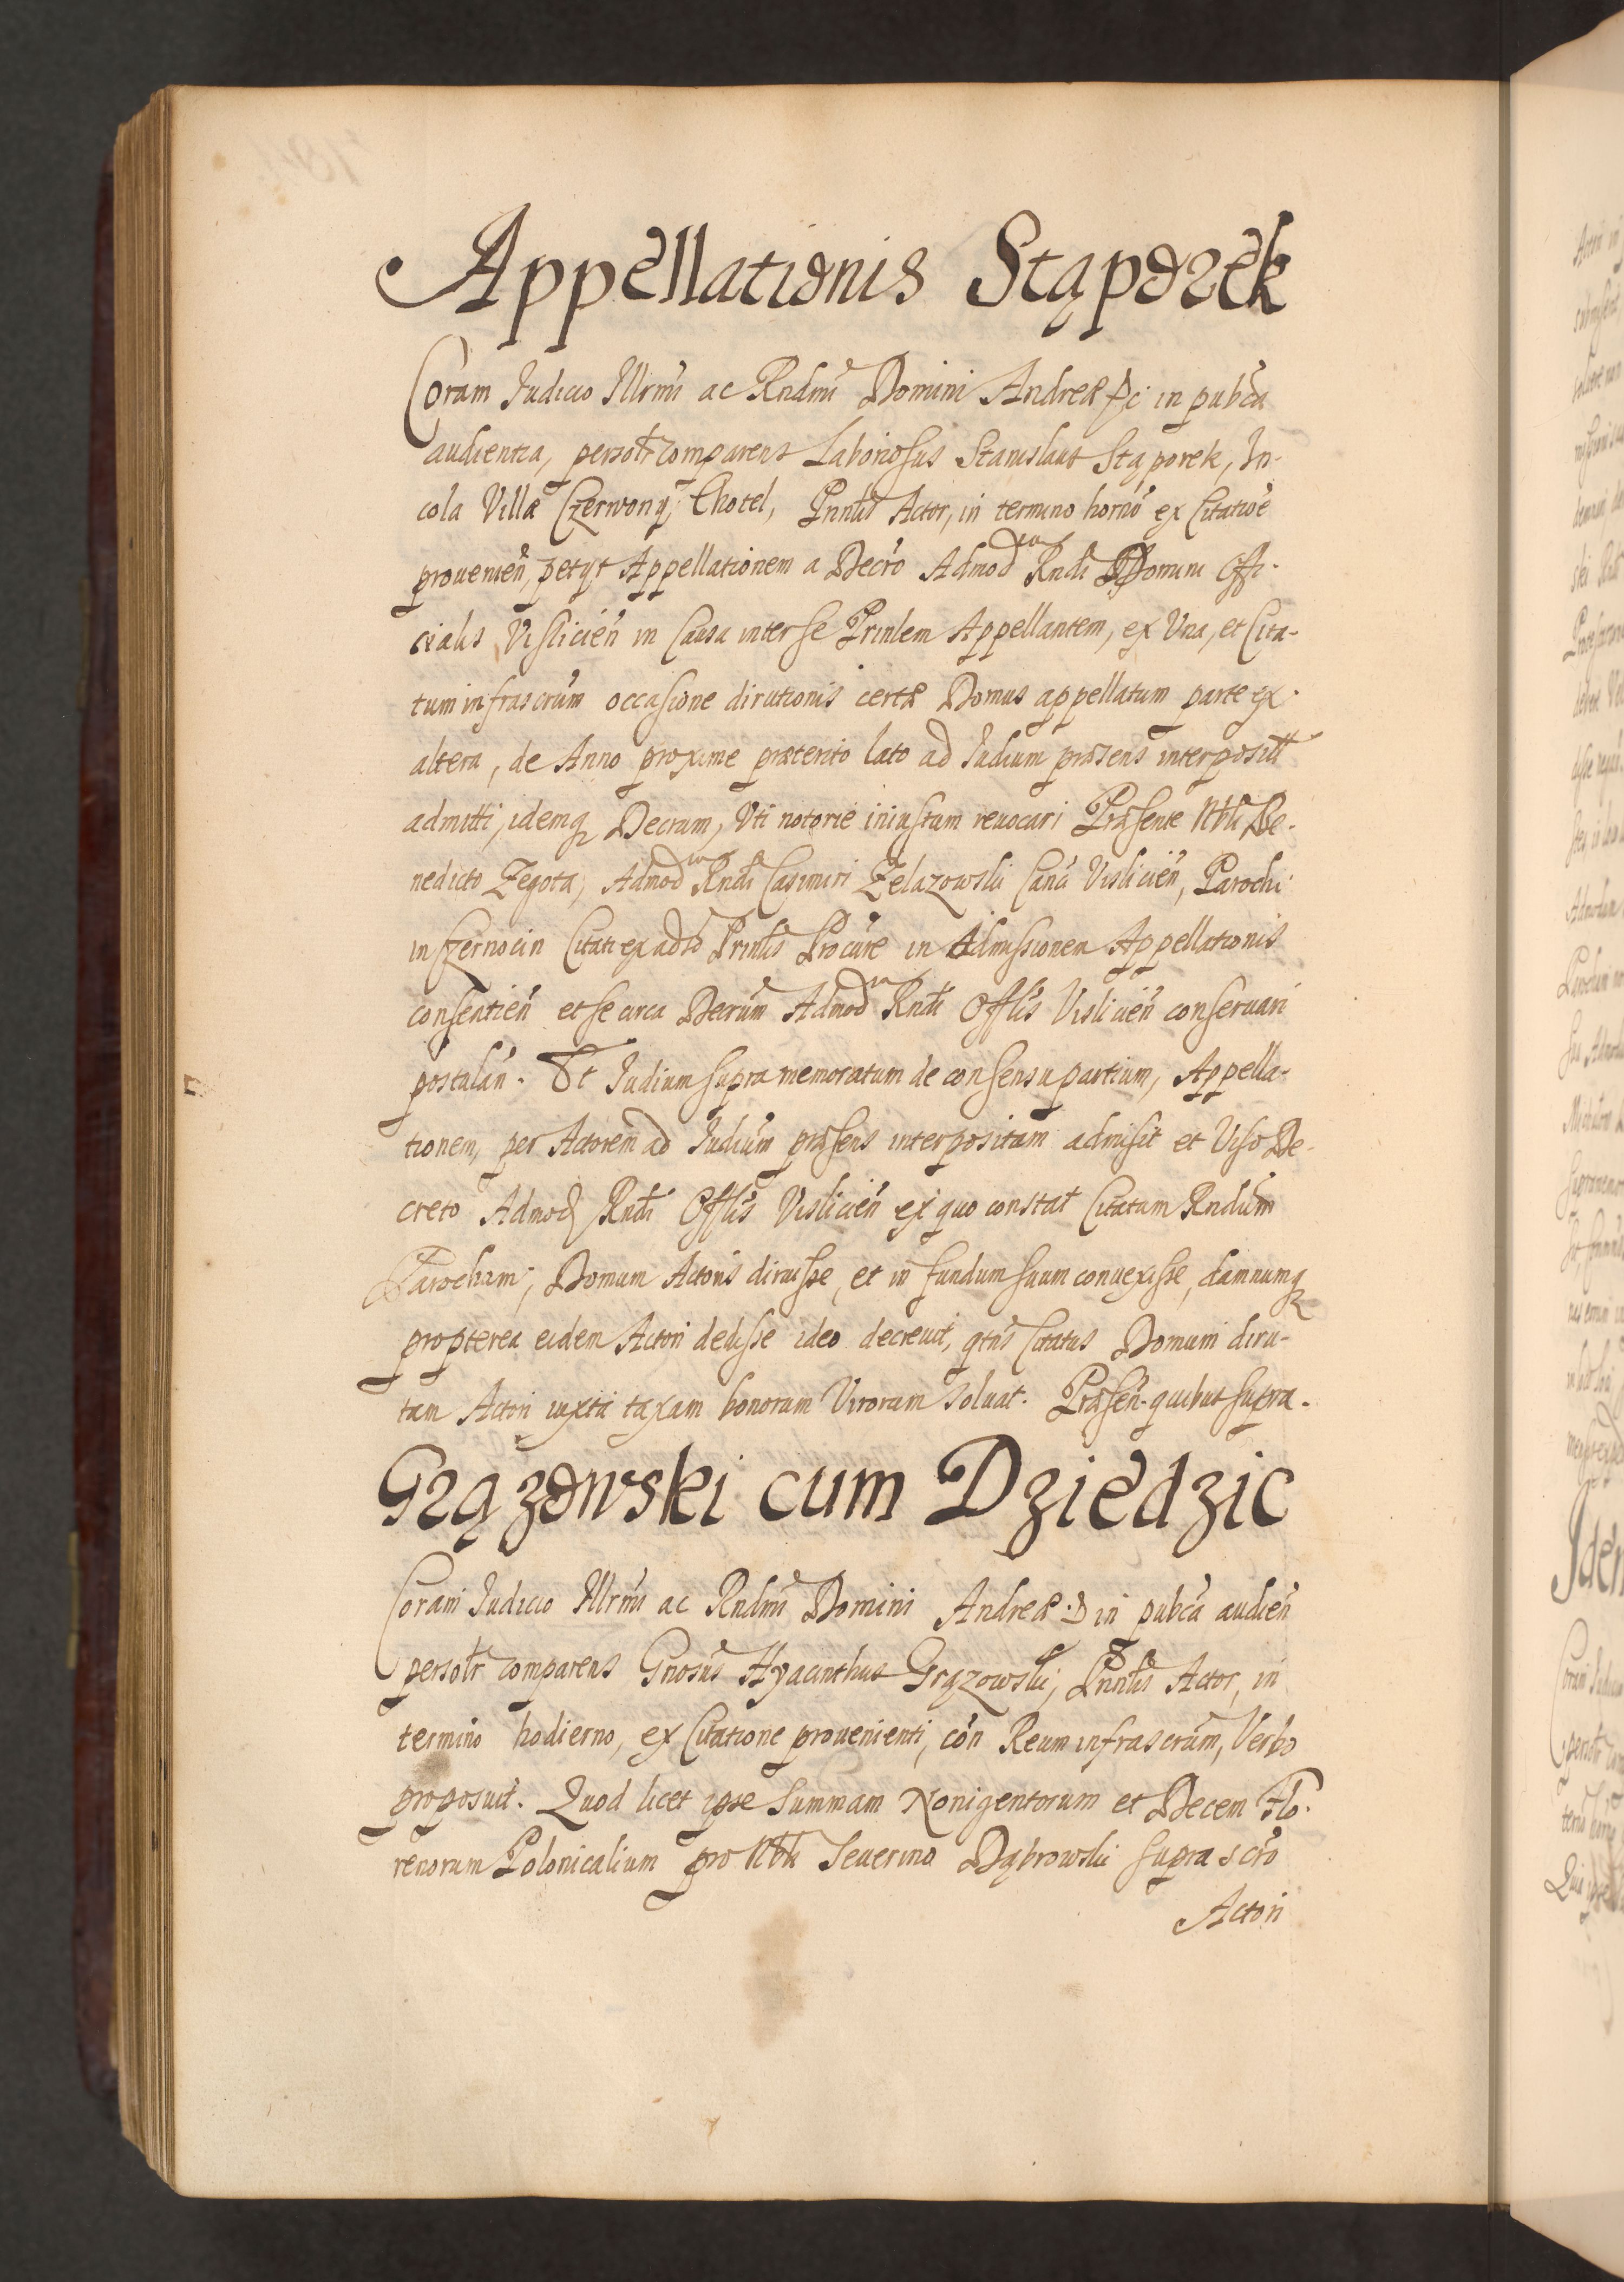 Appellationis Stąporek
Coram Iudicio Illrmi ac Rndmi Domini Andreæ in pubca
audientia, persolr comparens Laboriosus Stanislaus Stąporek, In-
cola Villæ Czerwony Chotel, Prinlis Actor, in termino horno ex Citatioe
provenien, petyt Appellationem a Decro Admod Rndi Domini Offi-
cialis Vislicien in Causa inter se Prinlem Appellantem, ex Una, et Cita-
tum infrascrum occasione dirutionis certæ Domus appellatum parte ex
altera, de Anno proxime præterito lato ad Iudium præsens interposit
admitti, idemq Decrum, Uti notorie iniustum reuocari Præsente Nbli Be-
nedicto Zegota, Admod Rndi Casimiri Zelazowski Canci Vislicien, Parochi
in Czernocin Citati ex adso Prinlis Procure in Admissionem Appellationis
consentien et se circa Decrum Admod Rndi Offlis Vislicien conseruari
postulan. Et Iudium supra memoratum de consensu partium, Appella-
tionem, per Actorem ad Iudium præsens interpositam admisit et Viso De-
creto Admod Rndi Offlis Vislicien ex quo constat Citatum Rndum
Parochum, Domum Actoris diruisse, et in fundum suum conuexisse, damnumq
propterea eidem Actori dedisse ideo decreuit, qtns Citatus Domum diru-
tam Actori iuxta taxam bonorum Virorum soluat. Præsen. quibus supra.
Grązowski cum Dziedzic
Coram Iudicio Illrmi ac Rndmi Domini Andreæ in pubca audien
persolr comparens Gnosus Hyacinthus Grązowski, Prinlis Actor, in
termino hodierno, ex Citatione prouenienti, con Reum infrascrum, Verbo
proposuit. Quod licet ipse Summam Nonigentorum et Decem Flo-
renorum Polonicalium pro Nbli Seuerino Dąbrowski suprascro
Actori